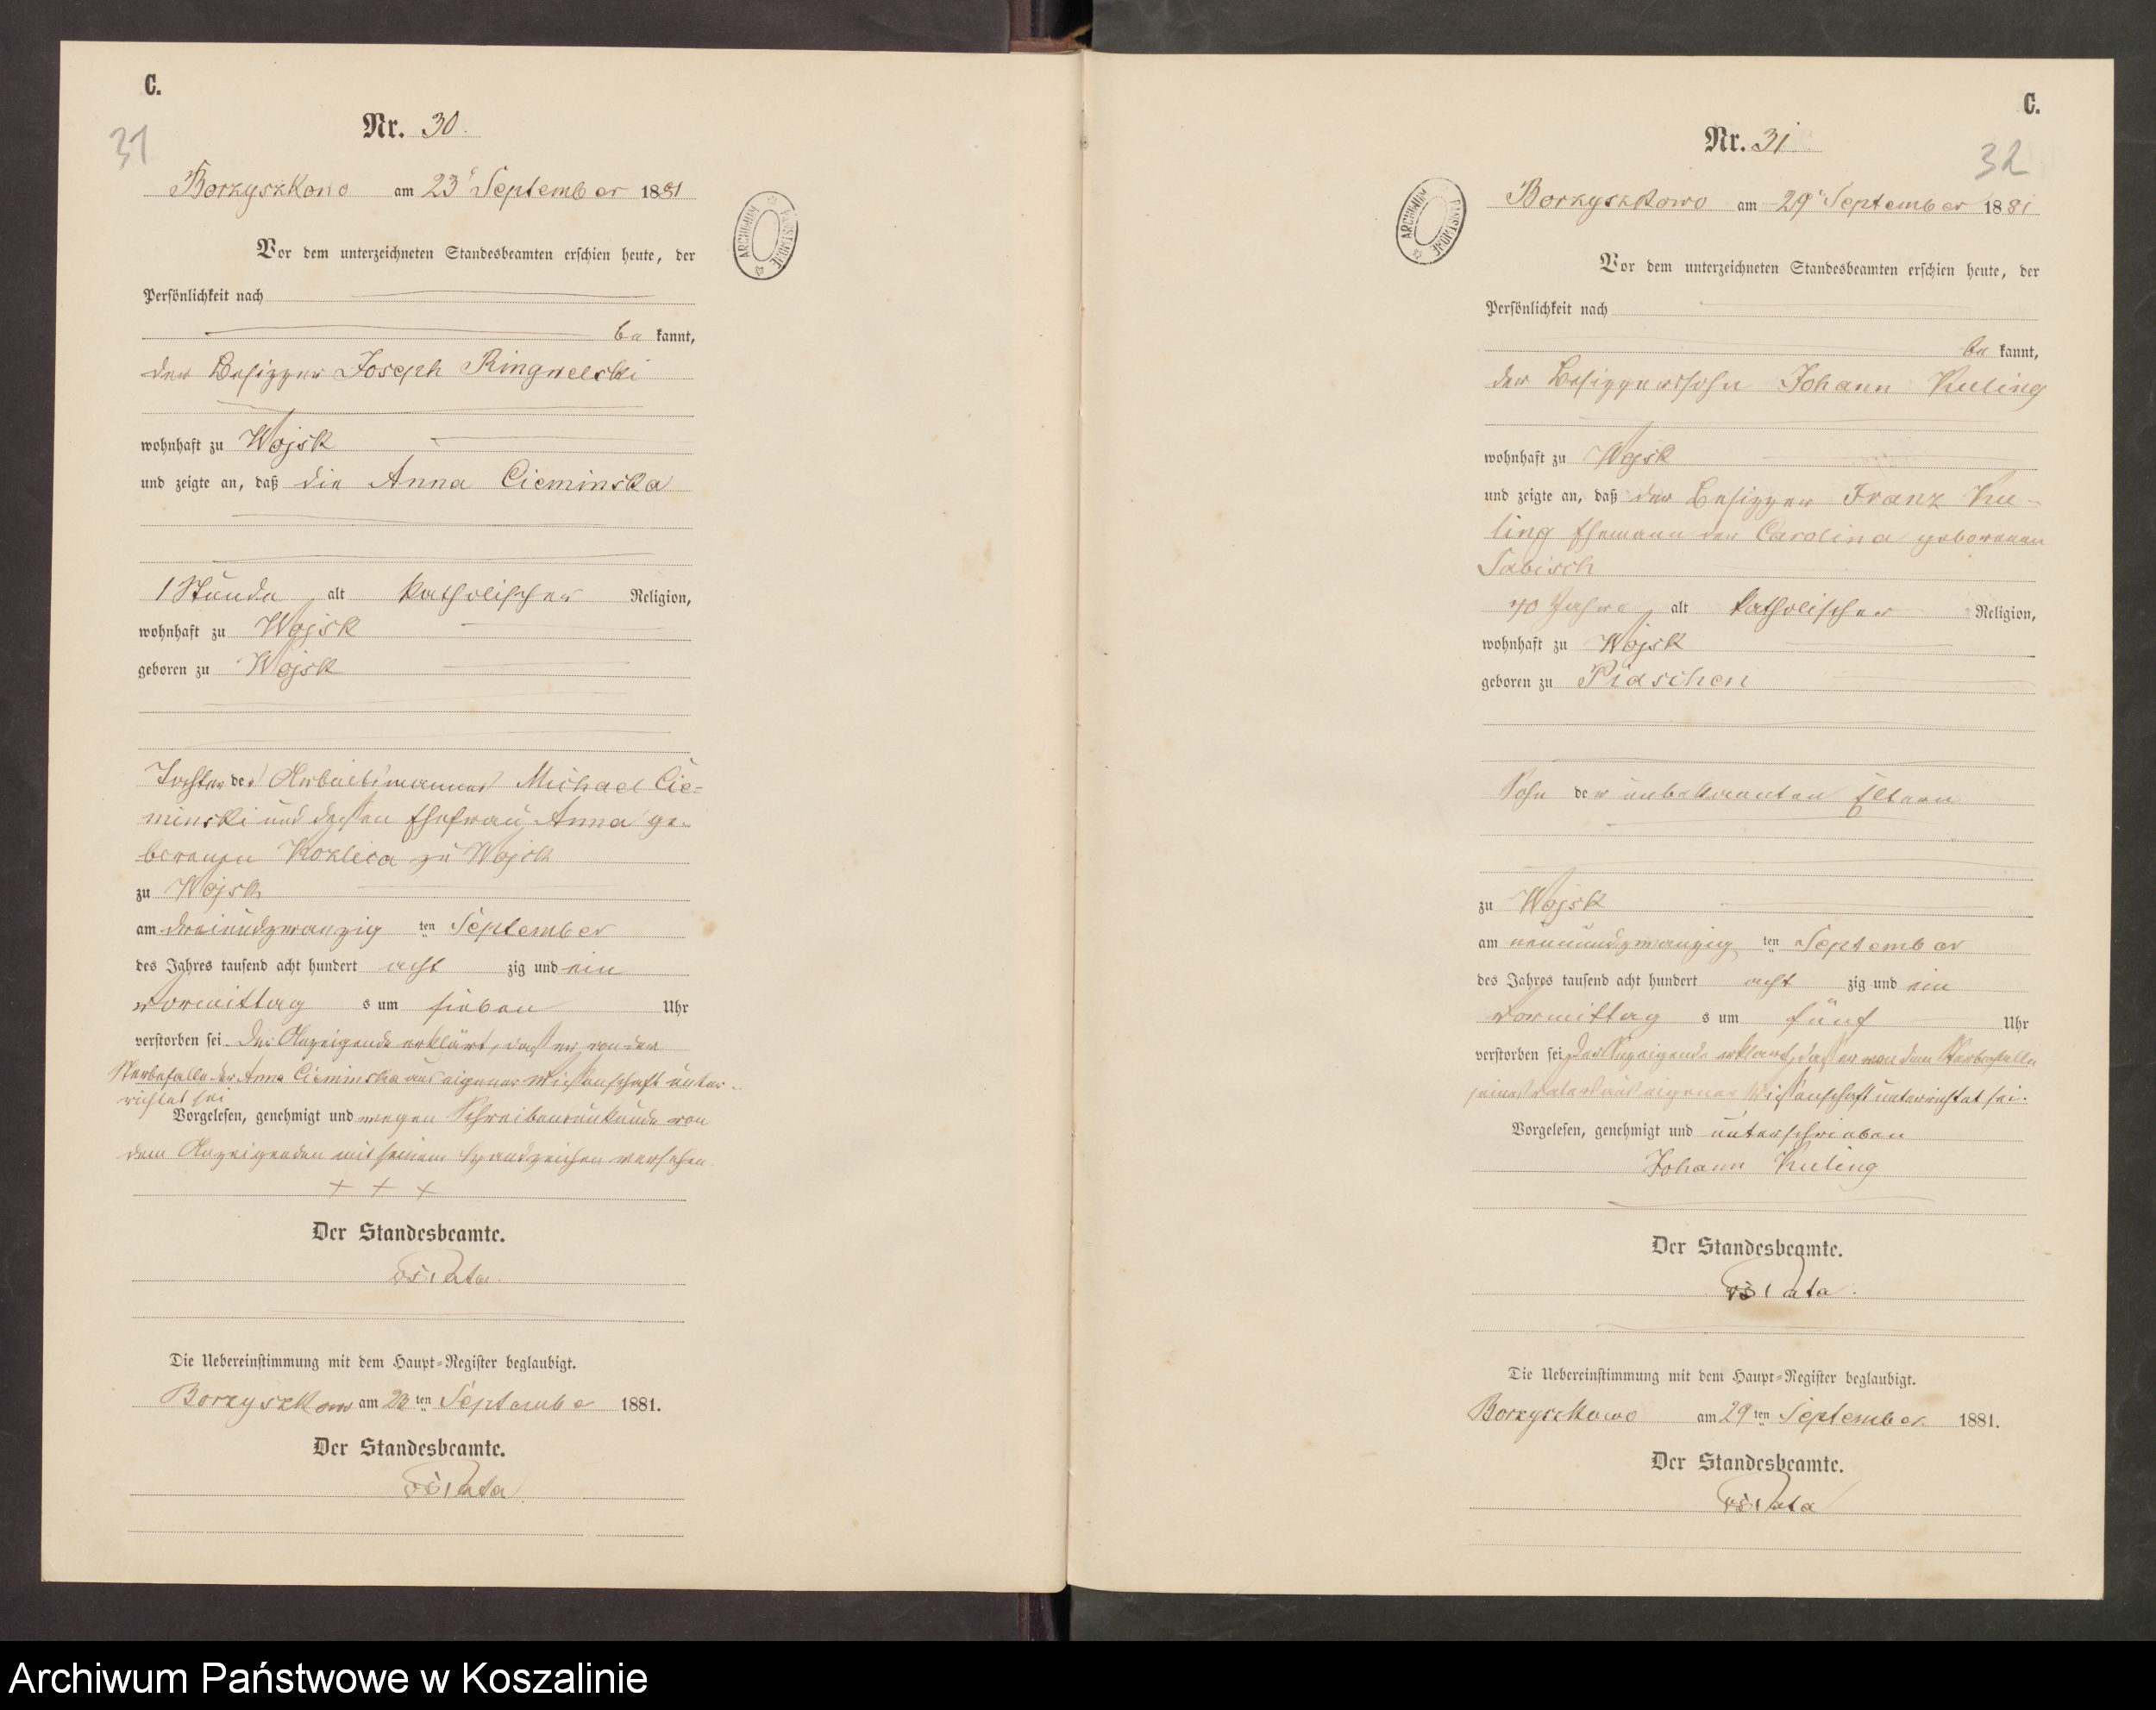 C.
31
Nr. 30.
Borzyszkowo am 23t September 1881
Vor dem unterzeichneten Standesbeamten erschien heute, der
Persönlichkeit nach
be kannt,
der Besitzer Joseph Ringwelski
wohnhaft zu Wojsk
und zeigte an, daß die Anna Cieminska
1 Stunde alt katholischer Religion,
wohnhaft zu Wojsk
geboren zu Wojsk
Tochter des Arbeitsmannes Michael Cie=
minski und dessen Ehefrau Anna ge-
borenen zu Wojsk
zu Wojsk
am dreiundzwanzig ten September
des Jahres tausend acht hundert acht zig und ein
vormittag s um sieben Uhr
verstorben sei. Der Anzeigende erklärt, dass er von dem
Sterbefalle der Anna Cieminska aus eigener Wissenschaft unter-
richtet sei
Vorgelesen, genehmigt und wegen Schreibensunkunde von
dem Anzeigenden mit seinem Handzeichen versehen
+ + +
Der Standesbeamte.
Die Uebereinstimmung mit dem Haupt=Register beglaubigt.
Borzyszkowo am 23 ten September 1881.
Der Standesbeamte.
ARCHIWUM PAŃSTWOWE
C.
Nr. 31.
32
Borzyszkowo am 29t September 1881
ARCHIWUM PAŃSTWOWE
Vor dem unterzeichneten Standesbeamten erschien heute, der
Persönlichkeit nach
be kannt,
der Besitzerssohn Johann Kuling
wohnhaft zu Wojsk
und zeigte an, daß der Besitzer Franz Ku-
ling Ehemann der Carolina geborenen
Sabisch
70 Jahre alt katholischer Religion,
wohnhaft zu Wojsk
geboren zu Piaschen
Sohn der unbekannten Eltern
zu Wojsk
am neunundzwanzig ten September
des Jahres tausend acht hundert acht zig und ein
vormittag s um fünf Uhr
verstorben sei. Der Anzeigende erklärt, dass er von dem Sterbefalle
seines Vaters aus eigener Wissenschaft unterrichtet sei.
Vorgelesen, genehmigt und unterschrieben
Johann Kuling
Der Standesbeamte.
Die Uebereinstimmung mit dem Haupt=Register beglaubigt.
Borzyszkowo am 29 ten September 1881.
Der Standesbeamte.
Archiwum Państwowe w Koszalinie